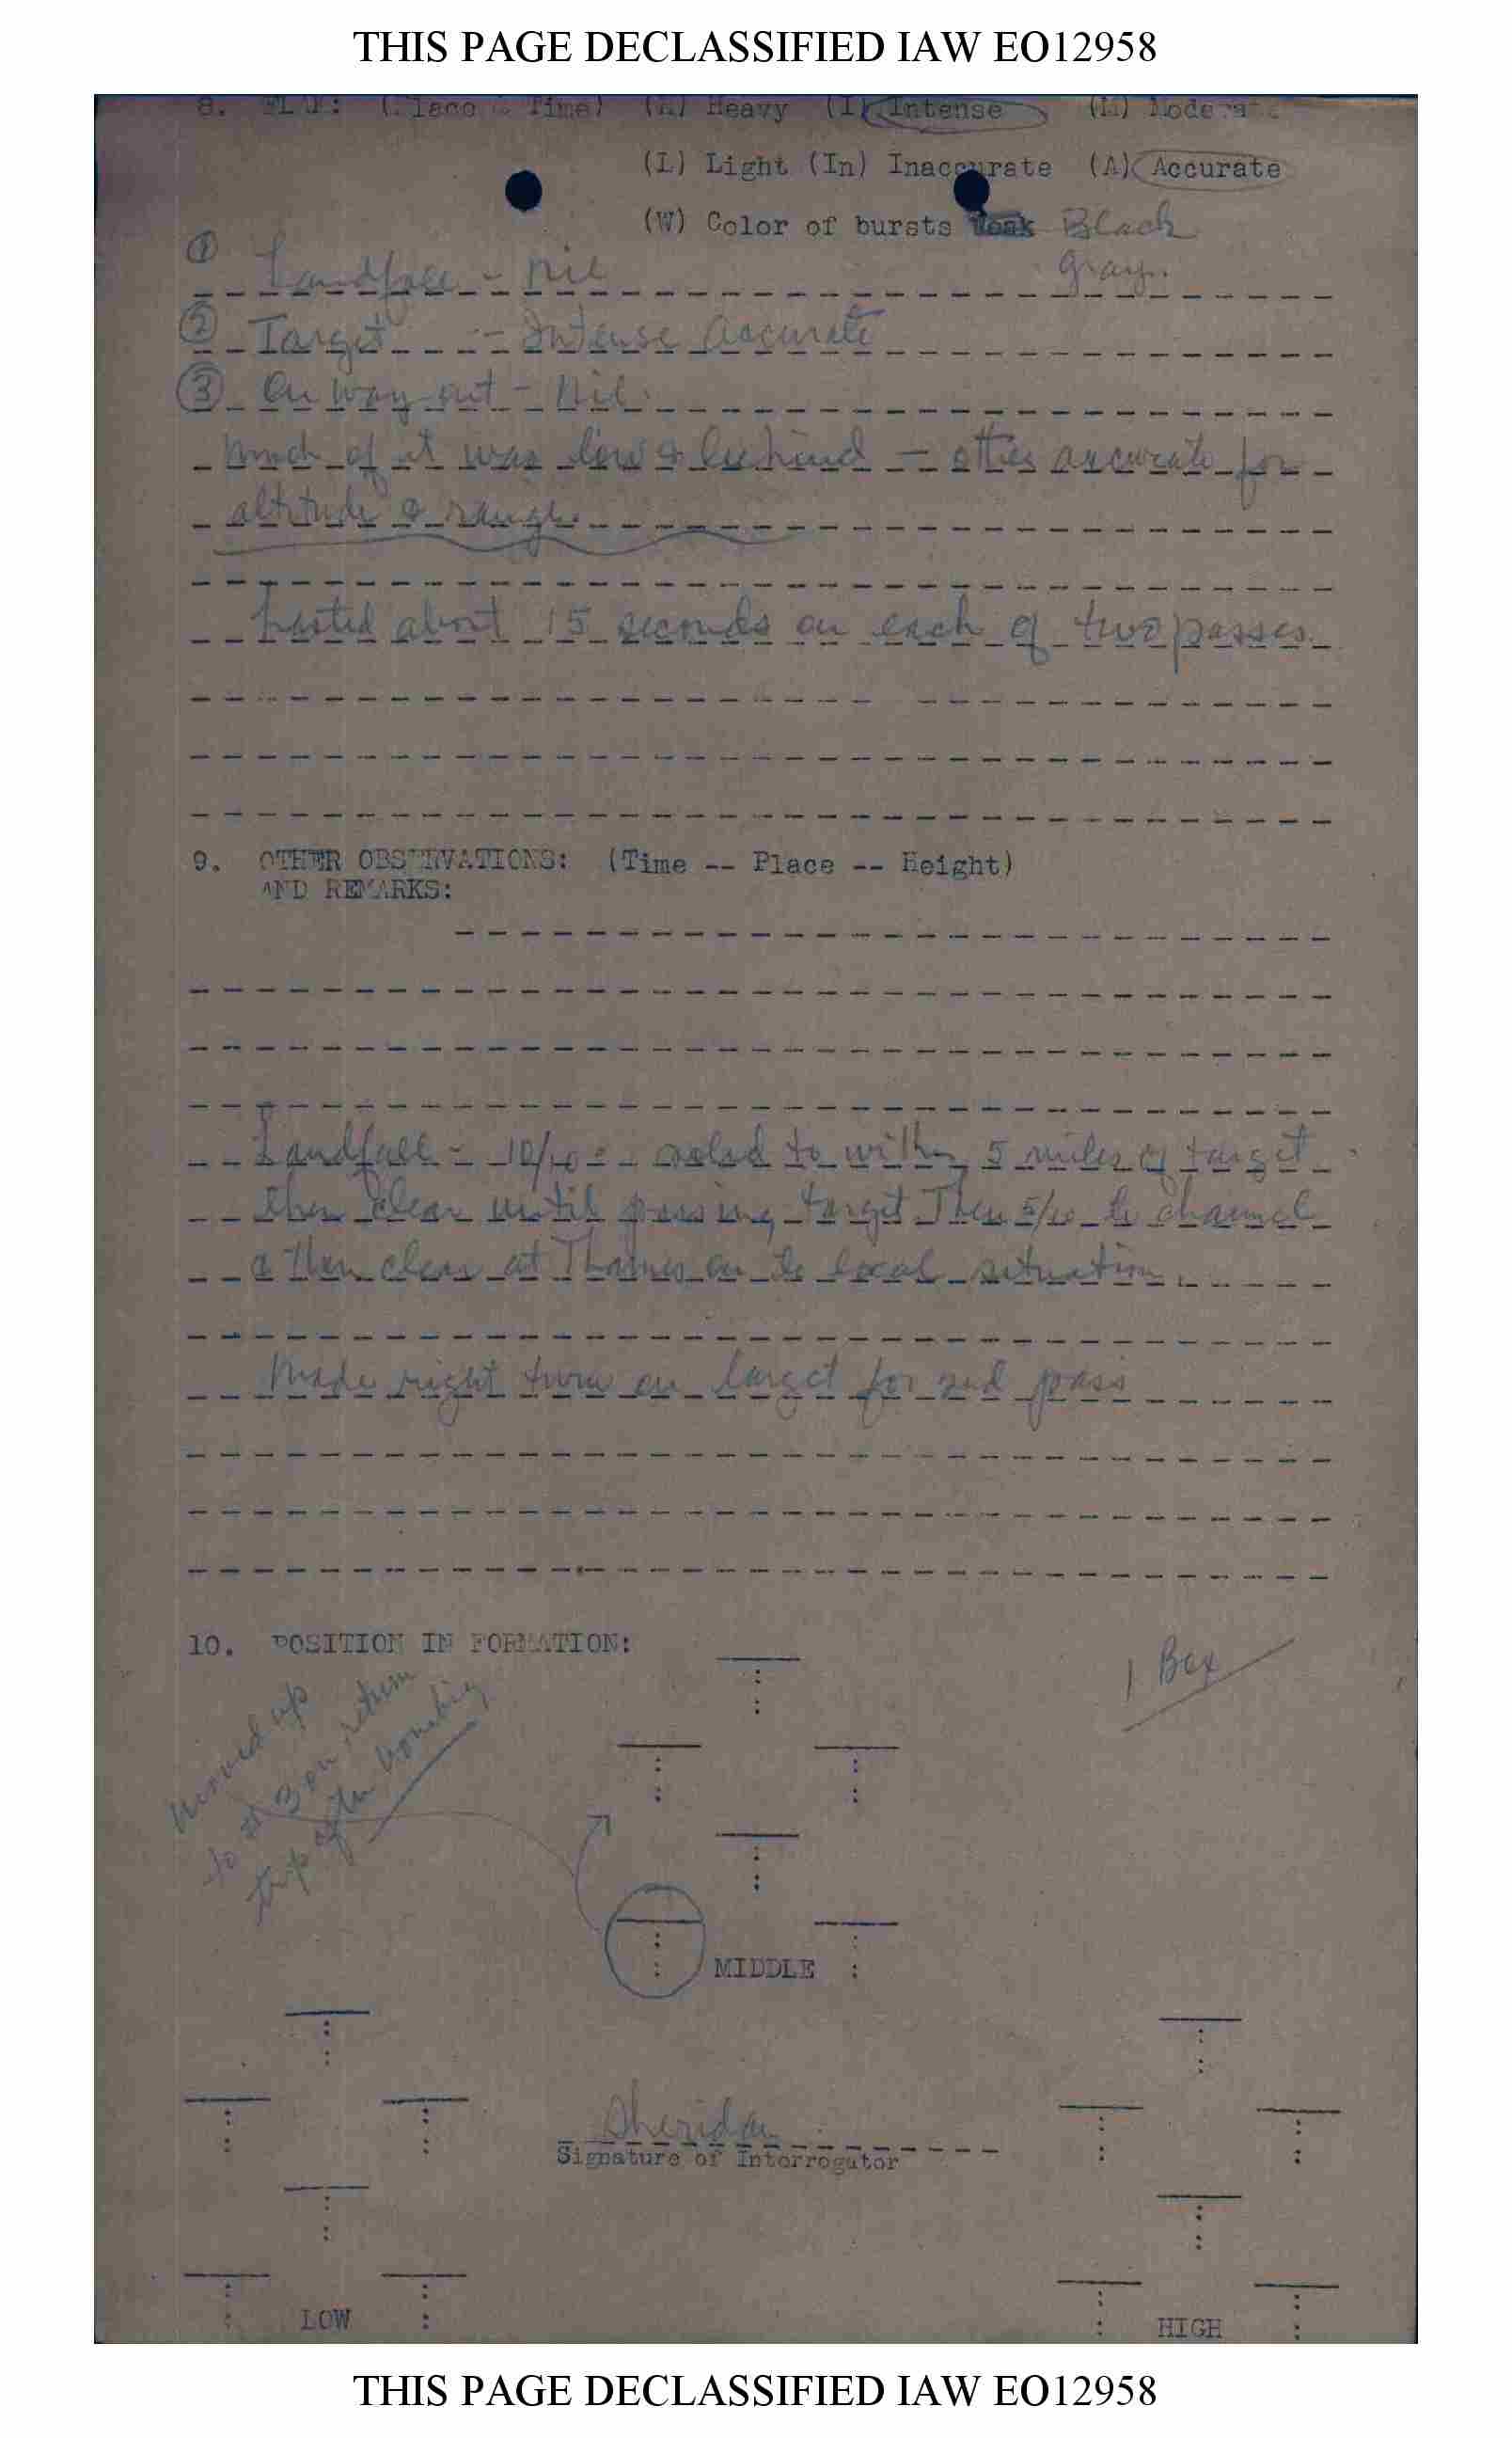 THIS PAGE DECLASSIFIED IAW EO12958
8. FLAK: (Place & Time) (H) Heavy (I) Intense (M) Moderate
(L) Light (In) Inaccurate (A) Accurate
(W) Color of bursts Black
Gray.
① Landfall - nil
② Target - Intense Accurate
③ On way out - Nil.
Much of it was low & behind - other accurate for
altitude & range.
Lasted about 15 seconds on each of two passes.
9. OTHER OBSERVATIONS: (Time -- Place -- Height)
AND REMARKS:
Landfall - 10/10 - solid to within 5 miles of target
then clear until passing target Then 5/10 to channel
& then clear at Thames on to local situation.
Made right turn on target for 2nd pass
10. POSITION IN FORMATION:
1 Box
moved up
to #3 on return
trip after bombing
MIDDLE
Sheridan
Signature of Interrogator
LOW
HIGH
THIS PAGE DECLASSIFIED IAW EO12958